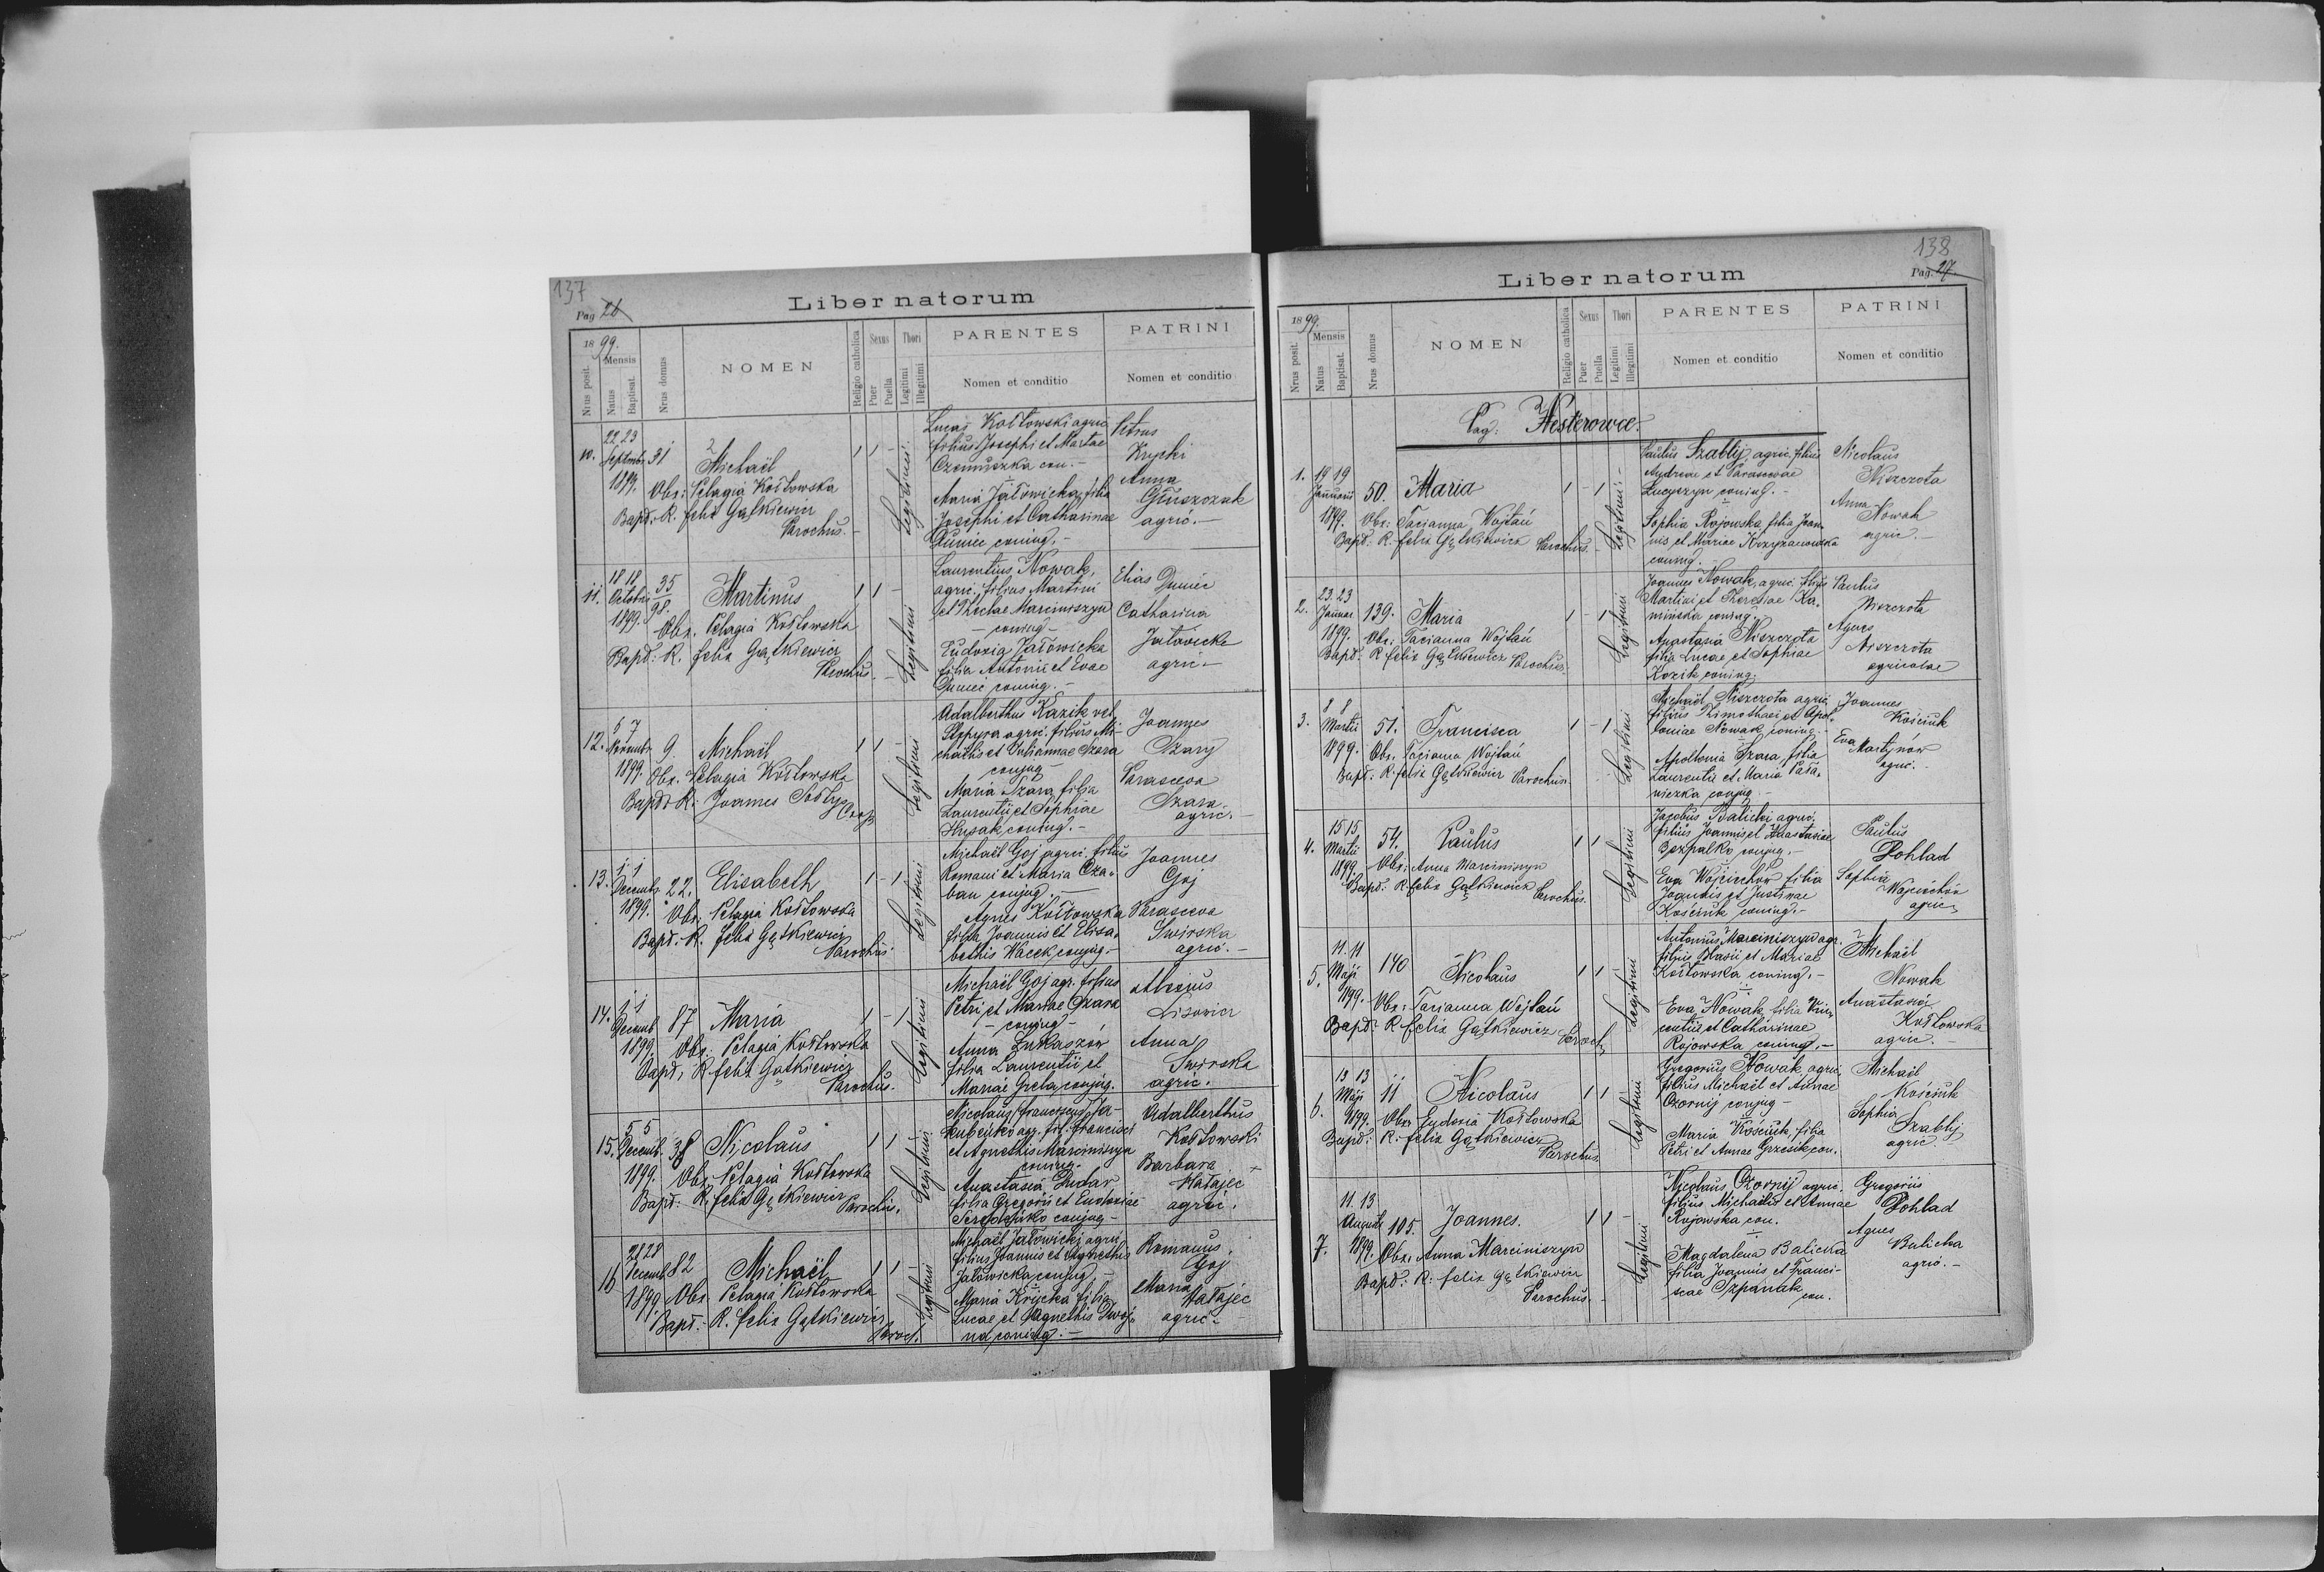 137
Pag 26
Liber natorum
1899.
Nrus posit.
Mensis
Natus
Baptisat.
Nrus domus
NOMEN
Religio catholica
Sexus
Puer
Puella
Thori
Legitimi
Illegitimi
PARENTES
Nomen et conditio
PATRINI
Nomen et conditio
10. 22 23 Septembr 1899. 31 Michaël 1 1 - Legitimi
Obs: Pelagia Kosłowska
Bapt: R. Felix Gątkiewicz
Parochus.
Lucas Kosłowski agric.
filius Josephi et Martae
con. -
Maria Jałowicka, filia
Josephi et Catharinae
Duniec coniug. -
Petrus
Krypki
Anna
Głuszczak
agric. -
11. 18 18 Octobris 1899. 35/98. Martinus 1 1 - Legitimi
Obs. Pelagia Kosłowska
Bapt: R. Felix Gątkiewicz
Parochus. -
Laurentius Nowak,
agric. filius Martini
et Theclae Marciniszyn
- coniug -
Eudoxia Jałowicka
filia Antonii et Evae
Duniec coniug. -
Elias Duniec
Catharina
Jałowicka
agric -
12. 6 7 Novembr 1899. 9 Michaël 1 1 - Legitimi
Obs. Pelagia Kosłowska
Bapt: R. Joannes
Coop
Adalbertus Kazik vel
agric. filius Mi-
chaelis et Juliannae Szara
conjug -
Maria Szara filia
Laurentii et Sophiae
Hrysak coniug. -
Joannes
Szary
Parasceva
Szara
agric. -
13. 1 1 Decembr 1899. 22. Elisabeth 1 - 1 Legitimi
Obs. Pelagia Kosłowska
Bapt. R. Felix Gątkiewicz
Parochus
Michaël Goj agric. filius
Romani et Maria Cza-
ban conjug. -
Agnes Kosłowska
filia Joannis et Elisa-
bethis Wacek, conjug -
Joannes
Goj
Parasceva
Swirska
agric. -
14. 1 1 Decemb 1899 87 Maria 1 - 1 Legitimi
Obs. Pelagia Kosłowska
Bapt. R. Felix Gątkiewicz
Parochus.
Michaël Goj agr. filius
Petri et Mariae Szara
- conjug -
Anna Łukaszów
filia Laurentii et
Mariae Grela, conjug.
Alexius
Lisowicz
Anna
Swirska
agric.
15. 5 5 Decemb. 1899. 38 Nicolaus 1 1 - Legitimi
Obs. Pelagia Kosłowska
Bapt: R. Felix Gątkiewicz Parochus.
Nicolaus Franciscus Ja-
kubeńko agr. fil. Francisci
et Agnethis Marciniszyn
coniug -
Anastasia Dudar
filia Gregorii et Eudoxiae
conjug -
Adalberthus
Kosłowski
Barbara
Hałajec
agric.
16 28 28 Decemb 1899 82 Michaël 1 1 - Legitimi
Obs. Pelagia Kosłowska
Bapt: R. Felix Gątkiewicz
Paroch.
Michaël Jałowicki agric
filius Joannis et Agnethis
Jałowicka, conjug -
Maria filia
Lucae et Agnethis
coniug. -
Romanus
Goj
Maria
Hałajec
agric -
138
Pag. 27
Liber natorum
1899.
Nrus posit.
Mensis
Natus
Baptisat.
Nrus domus
NOMEN
Religio catholica
Sexus
Puer
Puella
Thori
Legitimi
Illegitimi
PARENTES
Nomen et conditio
PATRINI
Nomen et conditio
Pag: Nesterowce.
1. 19 19 Januarii 1899. 50. Maria 1 - 1 Legitimi -
Obs: Tacianna Wojtań
Bapt: R. Felix Gątkiewicz Parochus. -
Paulus Szablij, agric. filius
Andreae et Parascevae
Lucyszyn coniug. -
Sophia Rojowska, filia Joan-
nis et Mariae Krzyżanowska
coniug.
Nicolaus
Niszczota
Anna
Nowak
agric. -
2. 23 23 Januar 1899. 139. Maria 1 - 1 Legitimi
Obs: Tacianna Wojtań
Bapt: R. Felix Gątkiewicz Parochus
Joannes Nowak, agric. filius
Martini et Theresiae Ka-
minska coniug.
Anastasia Niszczota
filia Lucae et Sophiae
Kozik coniug.
Paulus
Niszczota
Agnes
Niszczota
agricolae
3. 8 8 Martii 1899. 51. Francisca 1 - 1 Legitimi
Obs. Tacianna Wojtań
Bapt: R. Felix Gątkiewicz Parochus.
Michaël Niszczota agric.
filius Timothaei et Apol-
loniae Nowak, coniug -
Apollonia Szara, filia
Laurentii et Maria Pała-
niczka conjug -
Joannes
Kościuk
Eva
Martynów
agric. -
4. 15 15 Martii 1899. 54. Paulus 1 1 Legitimi
Obs: Anna Marciniszyn
Bapt: R. Felix Gątkiewicz Parochus.
Jacobus Balicki agric.
filius Joannis et Anastasiae
Bezpalko conjug. -
Eva Wojciechów filia
Joannis et Justinae
Kościuk coniug. -
Paulus
Pohlad
Sophia
Wojciechów
agric
5. 11 11 Maji 1899. 140 Nicolaus 1 1 Legitimi
Obs: Tacianna Wojtań
Bapt: R. Felix Gątkiewicz Paroch
Antonius Marciniszyn agr.
filius Blasii et Mariae
Kosłowska coniug. -
Eva Nowak, filia Vin-
centii et Catharinae
Rojowska coniug. -
Michaël
Nowak
Anastasia
Kosłowska
agric. -
6. 13 13 Maji 1899. 11 Nicolaus 1 1 Legitimi
Obs. Eudoxia Kosłowska
Bapt: R. Felix Gątkiewicz
Parochus.
Gregorius Nowak, agric.
filius Michaël et Annae
Czornij conjug -
Maria Kościuk, filia
Petri et Annae Grzesik, con.
Michaël
Kościuk
Sophia
Szablij
agric
7. 11 13 Augusti 1899. 105. Joannes. 1 1 - Legitimi
Obs. Anna Marciniszyn
Bapt: R. Felix Gątkiewicz
Parochus. -
Nicolaus Czornij agric.
filius Michaelis et Annae
Rojowska con.
Magdalena Balicka
filia Joannis et Franci-
scae Szpaniak
con.
Gregorius
Pohlad
Agnes
Balicka
agric. -